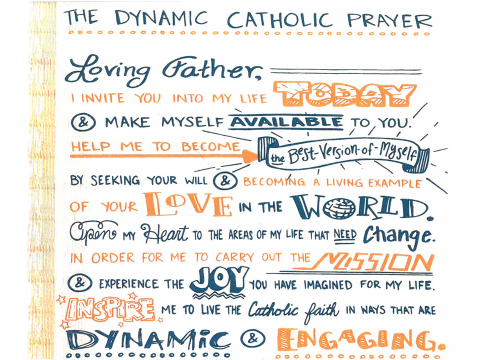 THE DYNAMIC CATHOLIC PRAYER
Loving Father,
I INVITE YOU INTO MY LIFE TODAY
& MAKE MYSELF AVAILABLE TO YOU.
HELP ME TO BECOME the Best-Version-of-Myself
BY SEEKING YOUR WILL & BECOMING A LIVING EXAMPLE
OF YOUR LOVE IN THE WORLD.
Open MY Heart TO THE AREAS OF MY LIFE THAT NEED Change.
IN ORDER FOR ME TO CARRY OUT THE MISSION
& EXPERIENCE THE JOY YOU HAVE IMAGINED FOR MY LIFE.
INSPIRE ME TO LIVE THE Catholic faith IN WAYS THAT ARE
DYNAMIC & ENGAGING.